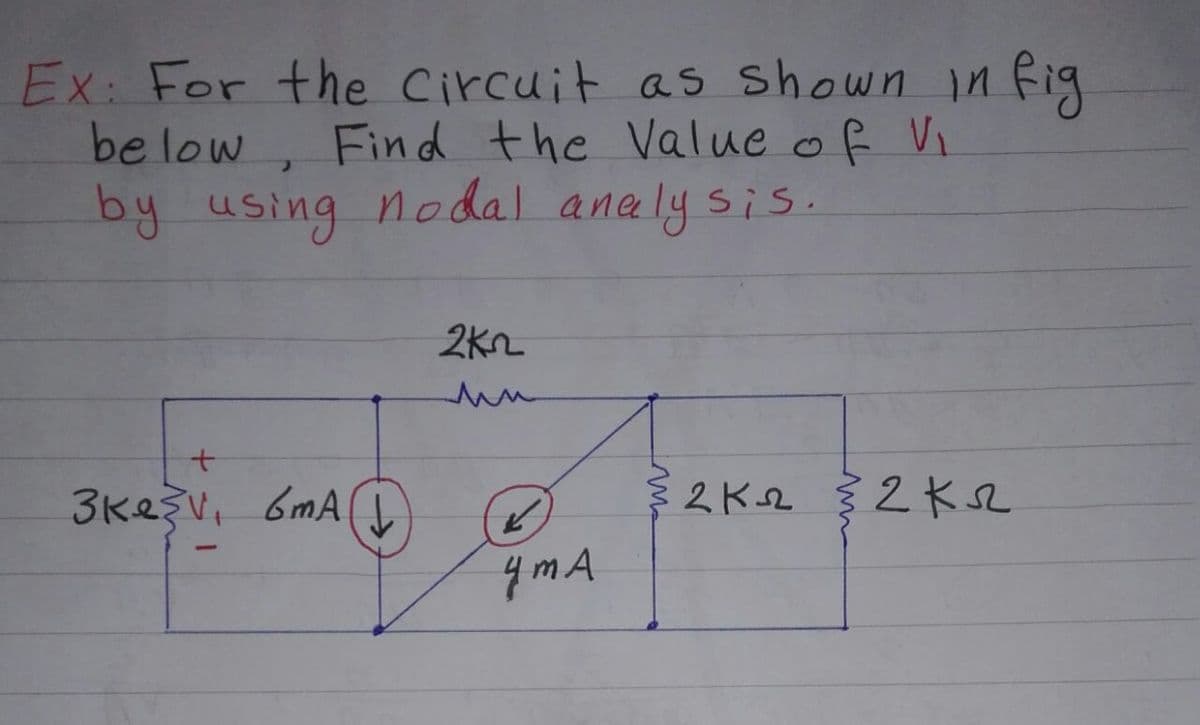 Ex: For the Circuit as shown in fig
below, Find the Value of V1
by using nodal analysis.
2KΩ
+
3KΩ V1 6mA 2KΩ 2KΩ
-
4mA